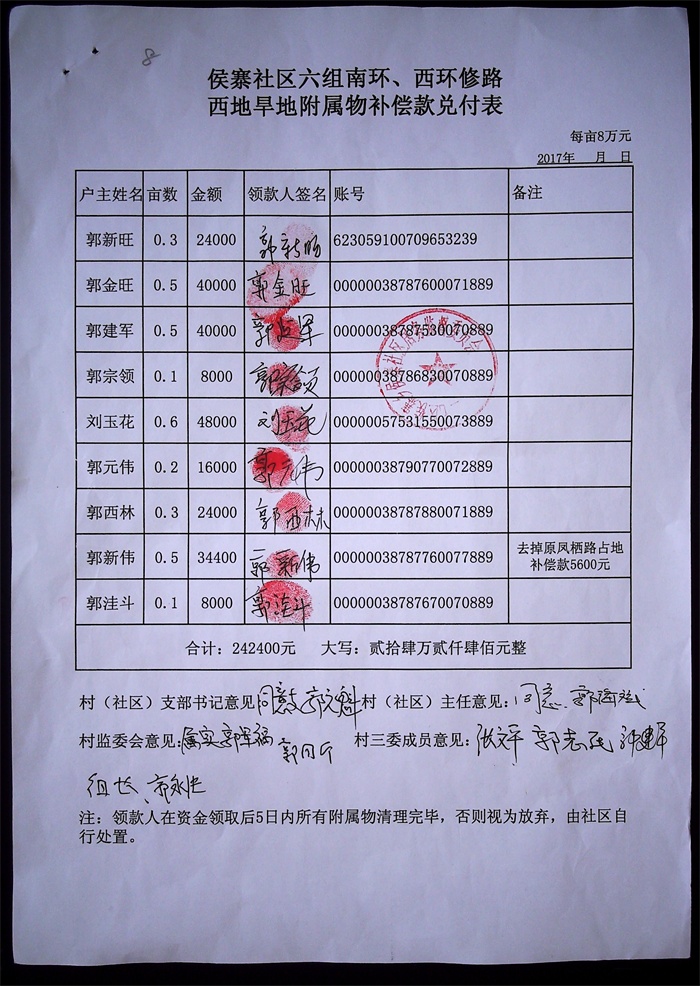 8
侯寨社区六组南环、西环修路
西地旱地附属物补偿款兑付表
每亩8万元
2017年 月 日
户主姓名 亩数 金额 领款人签名 账号 备注
郭新旺 0.3 24000 郭新旺 623059100709653239
郭金旺 0.5 40000 郭金旺 00000038787600071889
郭建军 0.5 40000 郭建军 00000038787530070889
郭宗领 0.1 8000 郭宗领 00000038786830070889
刘玉花 0.6 48000 刘玉花 00000057531550073889
郭元伟 0.2 16000 郭元伟 00000038790770072889
郭西林 0.3 24000 郭西林 00000038787880071889
郭新伟 0.5 34400 郭新伟 00000038787760077889 去掉原凤栖路占地
补偿款5600元
郭洼斗 0.1 8000 郭洼斗 00000038787670070889
合计：242400元 大写：贰拾肆万贰仟肆佰元整
村（社区）支部书记意见 同意 村（社区）主任意见：同意
村监委会意见：属实 村三委成员意见：
组长
注：领款人在资金领取后5日内所有附属物清理完毕，否则视为放弃，由社区自
行处置。